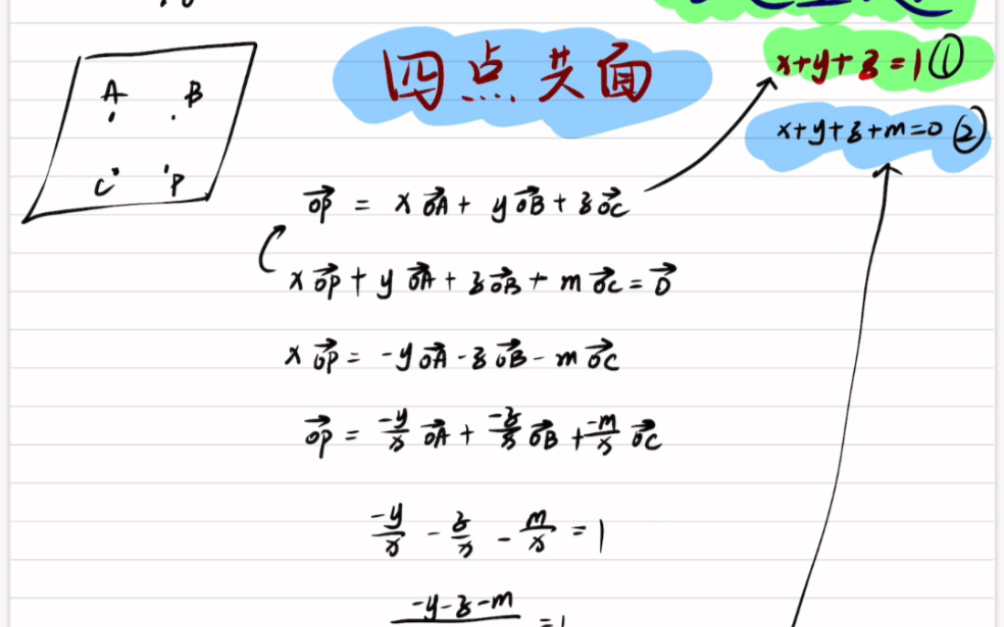 四点共面
x+y+z=1 ①
x+y+z+m=0 ②
A B
C P
\vec{OP} = x\vec{OA} + y\vec{OB} + z\vec{OC}
x\vec{OP} + y\vec{OA} + z\vec{OB} + m\vec{OC} = \vec{0}
x\vec{OP} = -y\vec{OA} - z\vec{OB} - m\vec{OC}
\vec{OP} = \frac{-y}{x}\vec{OA} + \frac{-z}{x}\vec{OB} + \frac{-m}{x}\vec{OC}
\frac{-y}{x} - \frac{z}{x} - \frac{m}{x} = 1
-y-z-m
=1